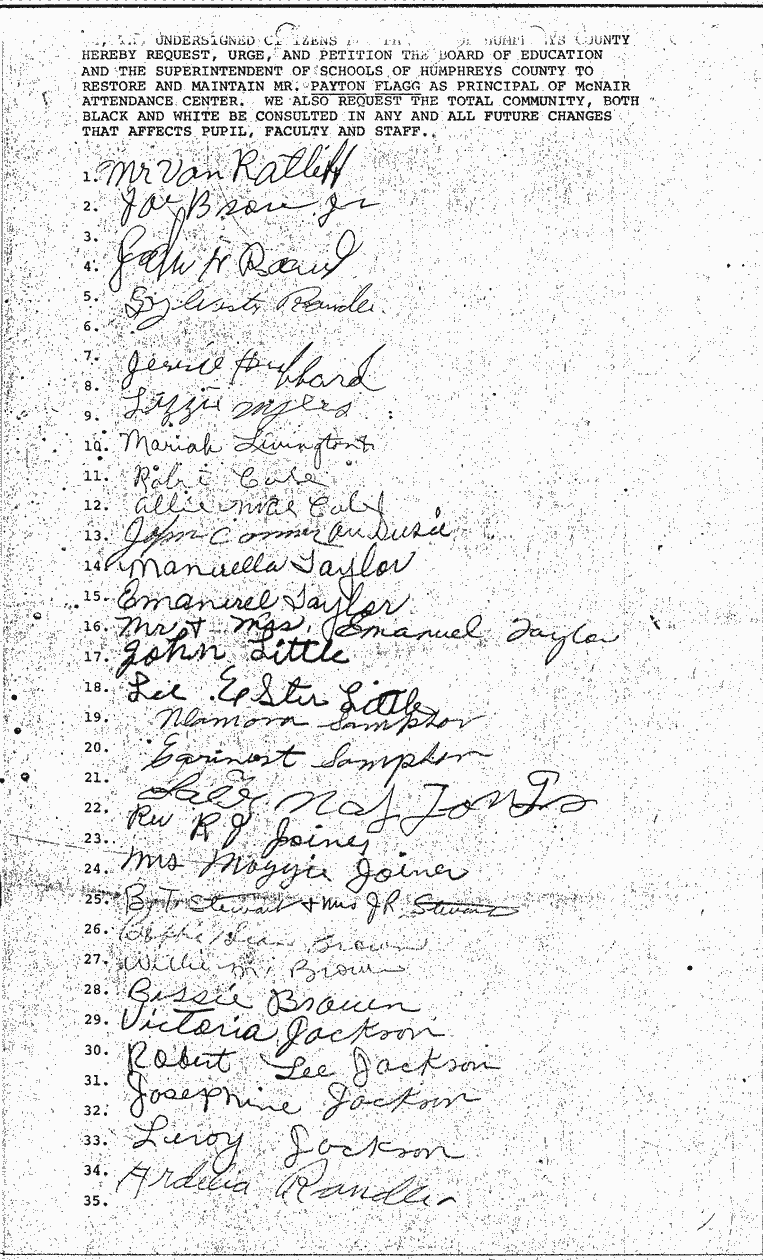 UNDERSIGNED CITIZENS COUNTY
HEREBY REQUEST, URGE, AND PETITION THE BOARD OF EDUCATION
AND THE SUPERINTENDENT OF SCHOOLS OF HUMPHREYS COUNTY TO
RESTORE AND MAINTAIN MR. PAYTON FLAGG AS PRINCIPAL OF McNAIR
ATTENDANCE CENTER. WE ALSO REQUEST THE TOTAL COMMUNITY, BOTH
BLACK AND WHITE BE CONSULTED IN ANY AND ALL FUTURE CHANGES
THAT AFFECTS PUPIL, FACULTY AND STAFF.
1. Mr Van Ratliff
2. Joe Jr
3.
4. John
5. Randle
6.
7. Jessie Hubbard
8.
9. Lizzie Myles
10. Mariah
11.
12. Allie Mae
13. John
14. Manuella Taylor
15. Emanuel Taylor
16. Mr + Mrs. Emanuel Taylor
17. John Little
18. Lee Ester Little
19. Sampton
20. Sampton
21.
22.
Rev R J Joiner
23.
24. Mrs Maggie Joiner
25. B. T. Stewart + Mrs J R. Stewart
26. Brown
27. Willie M. Brown
28. Bessie Brown
29. Victoria Jackson
30. Robert Lee Jackson
31. Josephine Jackson
32.
33. Leroy Jackson
34. Ardelia Randle
35.